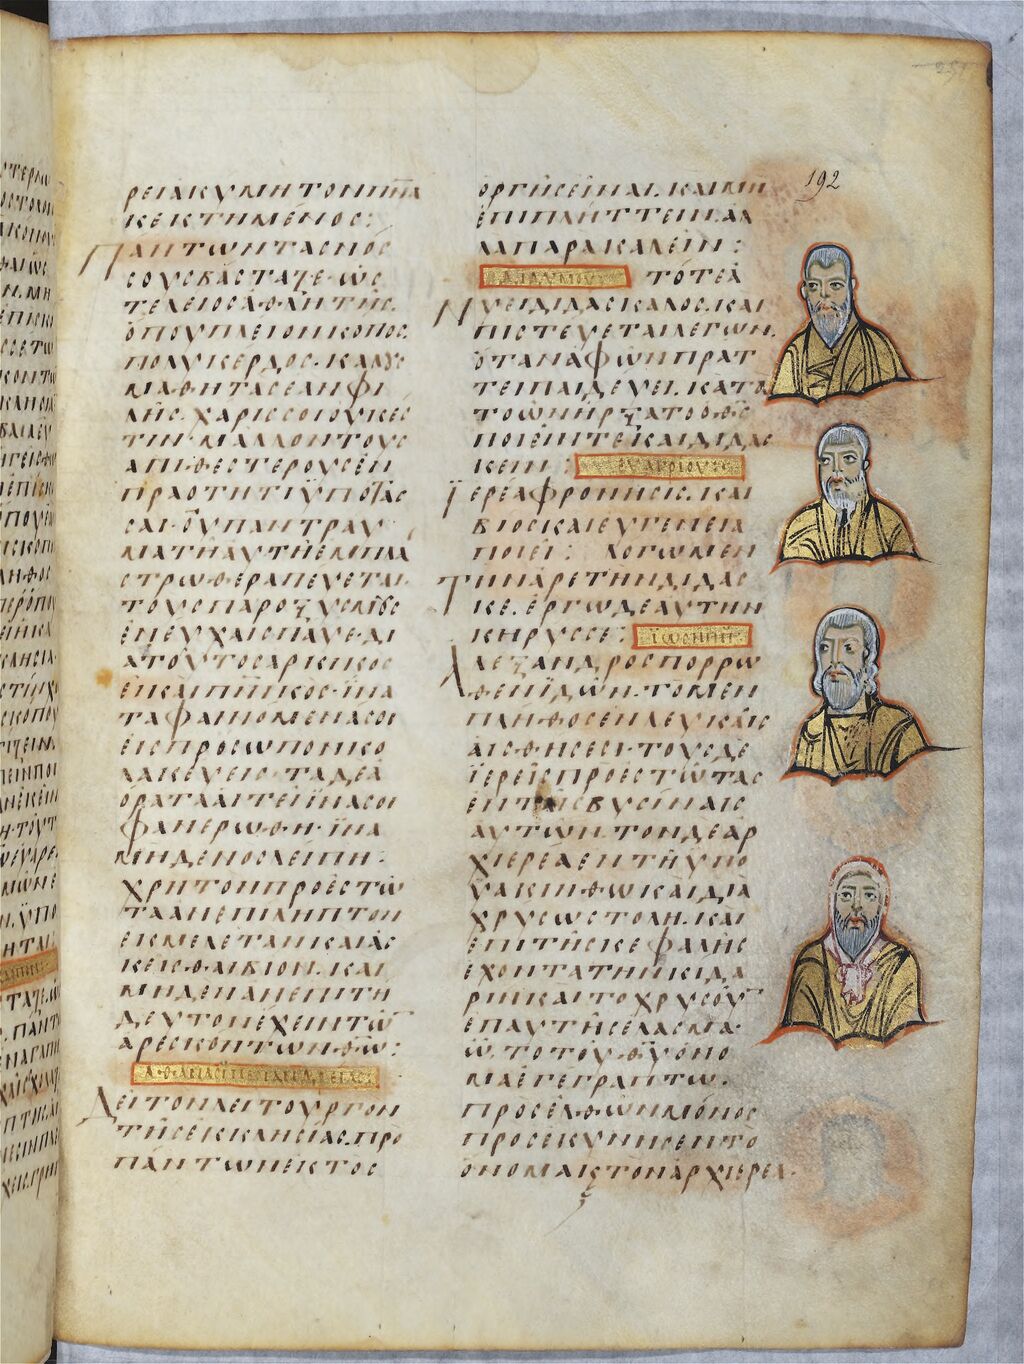 192
ΡΕΙΑΚΥΜΗΤΟΝΠΝΑ
ΚΕΚΤΗΜΕΝΟΣ:
ΠΑΝΤΩΝΤΑΣΝΟ
ΣΟΥΣΒΑΣΤΑΖΕ·ΩΣ
ΤΕΛΕΙΟΣΑΘΛΗΤΗΣ·
ΟΠΟΥΠΛΕΙΟΝΚΟΠΟΣ·
ΠΟΛΥΚΕΡΔΟΣ·ΚΑΛΟΥΣ
ΜΑΘΗΤΑΣΕΑΝΦΙ
ΛΗΣ·ΧΑΡΙΣΣΟΙΟΥΚΕΣ
ΤΙΝ·ΜΑΛΛΟΝΤΟΥΣ
ΑΠΙΘΕΣΤΕΡΟΥΣΕΝ
ΠΡΑΟΤΗΤΙΫΠΟΤΑΣ
ΣΑΙ·ΟΥΠΑΝΤΡΑΥ
ΜΑΤΗΑΥΤΗΕΜΠΛΑ
ΣΤΡΩΘΕΡΑΠΕΥΕΤΑΙ·
ΤΟΥΣΠΑΡΟΞΥΣΜΟΥΣ
ΕΝΕΥΧΑΙΣΠΑΥΕ·ΔΙ
ΑΤΟΥΤΟΣΑΡΚΙΚΟΣ
ΕΙΚΑΙΠΝΙΚΟΣ·ΪΝΑ
ΤΑΦΑΙΝΟΜΕΝΑΣΟΙ
ΕΙΣΠΡΟΣΩΠΟΝΚΟ
ΛΑΚΕΥΕΙΣ·ΤΑΔΕΑ
ΟΡΑΤΑΑΙΤΕΙΪΝΑΣΟΙ
ΦΑΝΕΡΩΘΗ·ΪΝΑ
ΜΗΔΕΝΟΣΛΕΙΠΗ·
ΧΡΗΤΟΝΠΡΟΕΣΤΩ
ΤΑΑΝΕΠΙΛΗΠΤΟΝ
ΕΚΜΕΛΕΤΑΝΚΑΙΑΣ
ΚΕΙΣΘΑΙΒΙΟΝ·ΚΑΙ
ΜΗΔΕΝΑΝΕΠΙΤΗ
ΔΕΥΤΟΝΕΧΕΙΝΤΩ
ΑΡΕΣΚΟΝΤΩΝΘΩ:
ΔΕΙΤΟΝΛΕΙΤΟΥΡΓΟΝ
ΤΗΣΕΚΚΛΗΣΙΑΣ·ΠΡΟ
ΠΑΝΤΩΝΕΚΤΟΣ
ΟΡΓΗΣΕΙΝΑΙ·ΚΑΙΜΗ
ΕΠΙΠΛΗΤΤΕΙΝ·ΑΛ
ΛΑΠΑΡΑΚΑΛΕΙΝ:
ΔΙΔΥΜΟΥ ΤΟΤΕΑ
ΝΥΕΙΔΙΔΑΣΚΑΛΟΣ·ΚΑΙ
ΠΙΣΤΕΥΕΤΑΙΛΕΓΩΝ·
ΟΤΑΝΑΦΩΝΠΡΑΤ
ΤΕΙΠΑΙΔΕΥΕΙ·ΚΑΤΑ
ΤΟΩΝΗΡΞΑΤΟΟΘΣ
ΠΟΙΕΙΝΤΕΚΑΙΔΙΔΑΣ
ΚΕΙΝ: ΕΥΑΓΡΙΟΥ
ΪΕΡΕΑΦΡΟΝΗΣΙΣ·ΚΑΙ
ΒΙΟΣΚΑΙΕΥΓΕΝΕΙΑ
ΠΟΙΕΙ: ΛΟΓΩΜΕΝ
ΤΗΝΑΡΕΤΗΝΔΙΔΑΣ
ΚΕ·ΕΡΓΩΔΕΑΥΤΗΝ
ΚΗΡΥΣΣΕ: ΙΩΣΗΠΠΟΥ
ΑΛΕΞΑΝΔΡΟΣΠΟΡΡΩ
ΘΕΝΪΔΩΝ·ΤΟΜΕΝ
ΠΛΗΘΟΣΕΝΛΕΥΚΑΙΣ
ΑΙΣΘΗΣΕΣΙ·ΤΟΥΣΔΕ
ΪΕΡΕΙΣΠΡΟΕΣΤΩΤΑΣ
ΕΝΤΑΙΣΒΥΣΙΝΑΙΣ
ΑΥΤΩΝ·ΤΟΝΔΕΑΡ
ΧΙΕΡΕΑΕΝΤΗΥΠΟ
ΥΑΚΙΝΘΩΚΑΙΔΙΑ
ΧΡΥΣΩΣΤΟΛΗ·ΚΑΙ
ΕΠΙΤΗΣΚΕΦΑΛΗΣ
ΕΧΟΝΤΑΤΗΝΚΙΔΑ
ΡΙΝΚΑΙΤΟΧΡΥΣΟΥΝ
ΕΠΑΥΤΗΣΕΛΑΣΜΑ·
Ω·ΤΟΤΟΥΘΥΟΝΟ
ΜΑΕΓΕΓΡΑΠΤΩ·
ΠΡΟΣΕΛΘΩΝΜΟΝΟΣ
ΠΡΟΣΕΚΥΝΗΣΕΝΤΟ
ΟΝΟΜΑΚΤΟΝΑΡΧΙΕΡΕΑ·